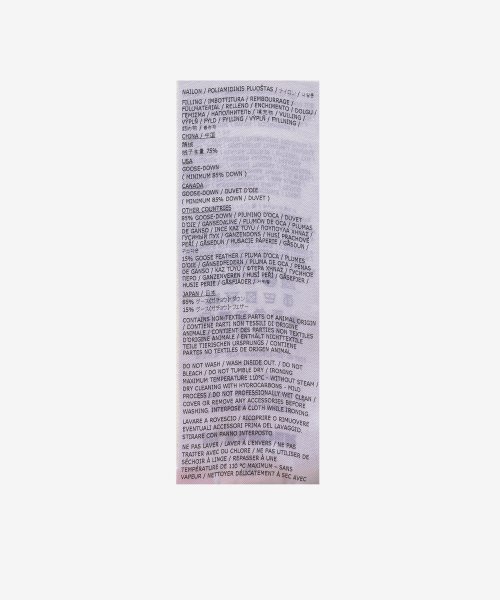 NAILON / POLIAMIDINIS PLUOŠTAS / ナイロン /
FILLING / IMBOTTITURA / REMBOURRAGE /
FÜLLMATERIAL / RELLENO / ENCHIMENTO / DOLGU /
ΓΕΜΙΣΜΑ / НАПОЛНИТЕЛЬ / 填充物 / VULLING /
VÝPLŇ / FYLD / FYLLING / VÝPLŇ / FYLLNING /
CHINA / 中国
鹅绒
绒子含量 75%
USA
GOOSE-DOWN
( MINIMUM 85% DOWN )
CANADA
GOOSE-DOWN / DUVET D'OIE
( MINIMUM 85% DOWN / DUVET )
OTHER COUNTRIES
85% GOOSE-DOWN / PIUMINO D'OCA / DUVET
D'OIE / GÄNSEDAUNE / PLUMÓN DE OCA / PLUMAS
DE GANSO / INCE KAZ TÜYÜ / ΠΟΥΠΟΥΛΑ ΧΗΝΑΣ /
ГУСИНЫЙ ПУХ / GANZENDONS / HUSÍ PRACHOVÉ
PEŘÍ / GÅSEDUN / HUSACIE PÁPERIE / GÅSDUN /
15% GOOSE FEATHER / PIUMA D'OCA / PLUMES
D'OIE / GÄNSEFEDERN / PLUMA DE OCA / PENAS DE
GANSO / KAZ TÜYÜ / ΦΤΕΡΑ ΧΗΝΑΣ / ГУСИНОЕ
ПЕРО / GANZENVEREN / HUSÍ PEŘÍ / GÅSEFJER /
HUSIE PERIE / GÅSFJÄDER /
JAPAN / 日本
85% グース(ガチョウ)ダウン
15% グース(ガチョウ)フェザー
CONTAINS NON-TEXTILE PARTS OF ANIMAL ORIGIN
/ CONTIENE PARTI NON TESSILI DI ORIGINE
ANIMALE / CONTIENT DES PARTIES NON TEXTILES
D'ORIGINE ANIMALE / ENTHÄLT NICHTTEXTILE
TEILE TIERISCHEN URSPRUNGS / CONTIENE
PARTES NO TEXTILES DE ORIGEN ANIMAL
DO NOT WASH / WASH INSIDE OUT. / DO NOT
BLEACH / DO NOT TUMBLE DRY / IRONING
MAXIMUM TEMPERATURE 110°C - WITHOUT STEAM /
DRY CLEANING WITH HYDROCARBONS - MILD
PROCESS / DO NOT PROFESSIONALLY WET CLEAN /
COVER OR REMOVE ANY ACCESSORIES BEFORE
WASHING. INTERPOSE A CLOTH WHILE IRONING.
LAVARE A ROVESCIO / RICOPRIRE O RIMUOVERE
EVENTUALI ACCESSORI PRIMA DEL LAVAGGIO.
STIRARE CON PANNO INTERPOSTO
NE PAS LAVER / LAVER À L'ENVERS / NE PAS
TRAITER AVEC DU CHLORE / NE PAS UTILISER DE
SÉCHOIR À LINGE / REPASSER À UNE
TEMPÉRATURE DE 110 °C MAXIMUM – SANS
VAPEUR / NETTOYER DÉLICATEMENT À SEC AVEC